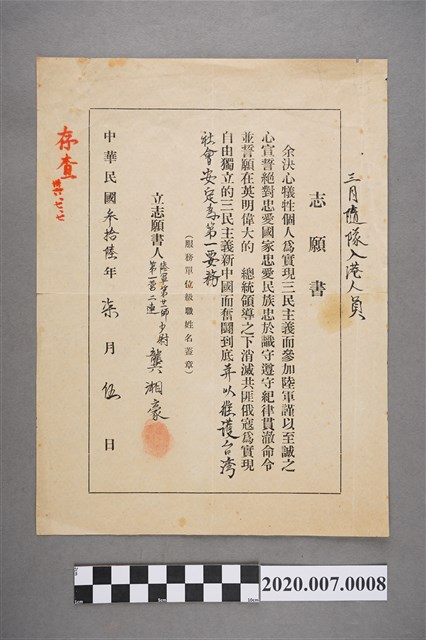 三月隨隊入港人員
志願書
余決心犧牲個人爲實現三民主義而參加陸軍謹以至誠之
心宣誓絕對忠愛國家忠愛民族忠於識守遵守紀律貫澈命令
並誓願在英明偉大的 總統領導之下消滅共匪俄寇爲實現
自由獨立的三民主義新中國而奮鬭到底并以維護台湾
社會安定為第一要務
(服務單位級職姓名蓋章)
立志願書人 陸軍第
第一营二連 龔湘豪
中華民國叁拾陸年柒月伍日
存查
2020.007.0008